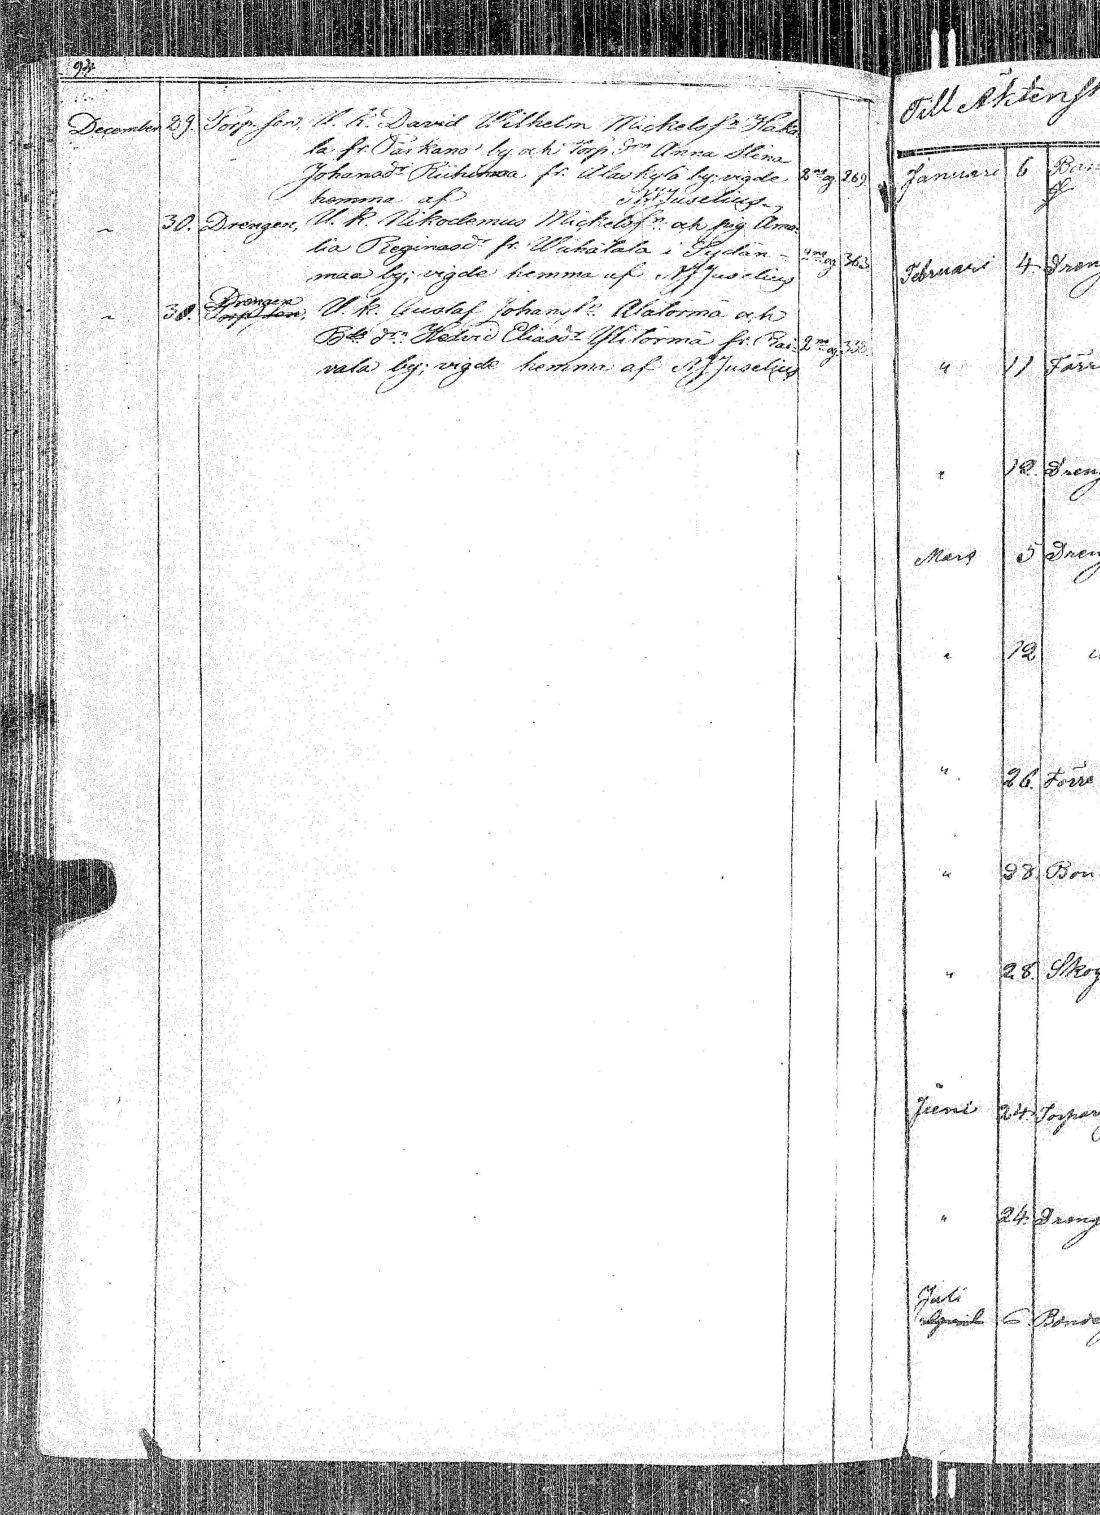 94
December 29. Torp. son, U. k. David Wilhelm Mickelssn Hako-
la fr. Parkano by och torp. drn Anna Stina
Johansdr Riihimaa fr. Alaskylä by; vigde 2ne og 269
hemma af Juselius
" 30. Drengen, U. k. Nikodemus Mickelssn och pig. Ama-
lia Reginasdr fr. Wuhatala i Sydän-
maa by; vigde hemma af Juselius 2ne og 363
" 30. Drengen U. k. Gustaf Johanss. Alatormä och
Bde drn Hedvid Eliasdr Ylitörmä fr. Tai- 2ne og 338
vala by; vigde hemma af Juselius
Till Äktensk
Januari 6
Februari 4 Dreng
" 11 Förr
" 12. Dreng
Mars 5 Dreng
" 12
" 26. Förre
" 28. Bon
" 28. Skog
Juni 24. Torpar
" 24. Dreng
Juli 6. Bonde